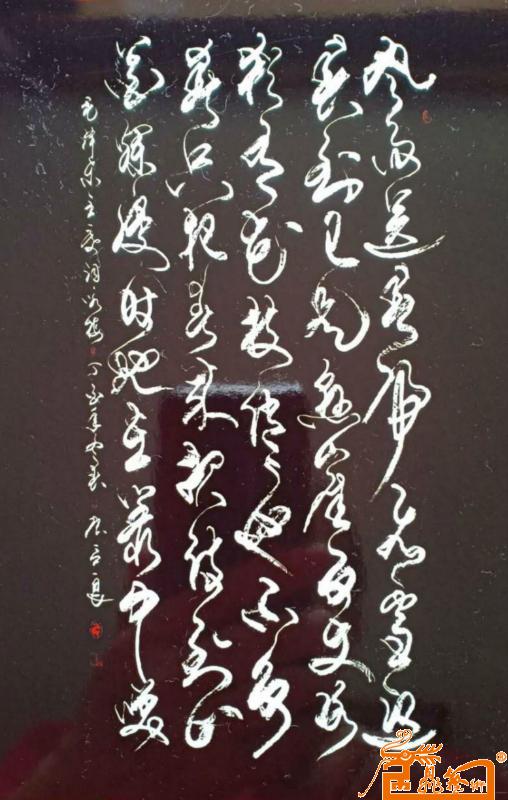 风雨送春归飞雪迎
春到已是悬崖百丈冰
犹有花枝俏俏也不争
春只把春来报待到山
花烂漫时她在丛中笑
毛泽东主席词咏梅 丁亥年